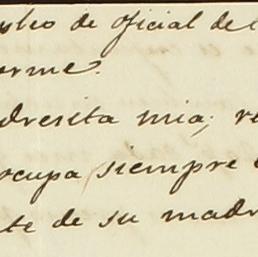 pleo de oficial de
orme.
dresita mia, re
ocupa siempre
te de su madr